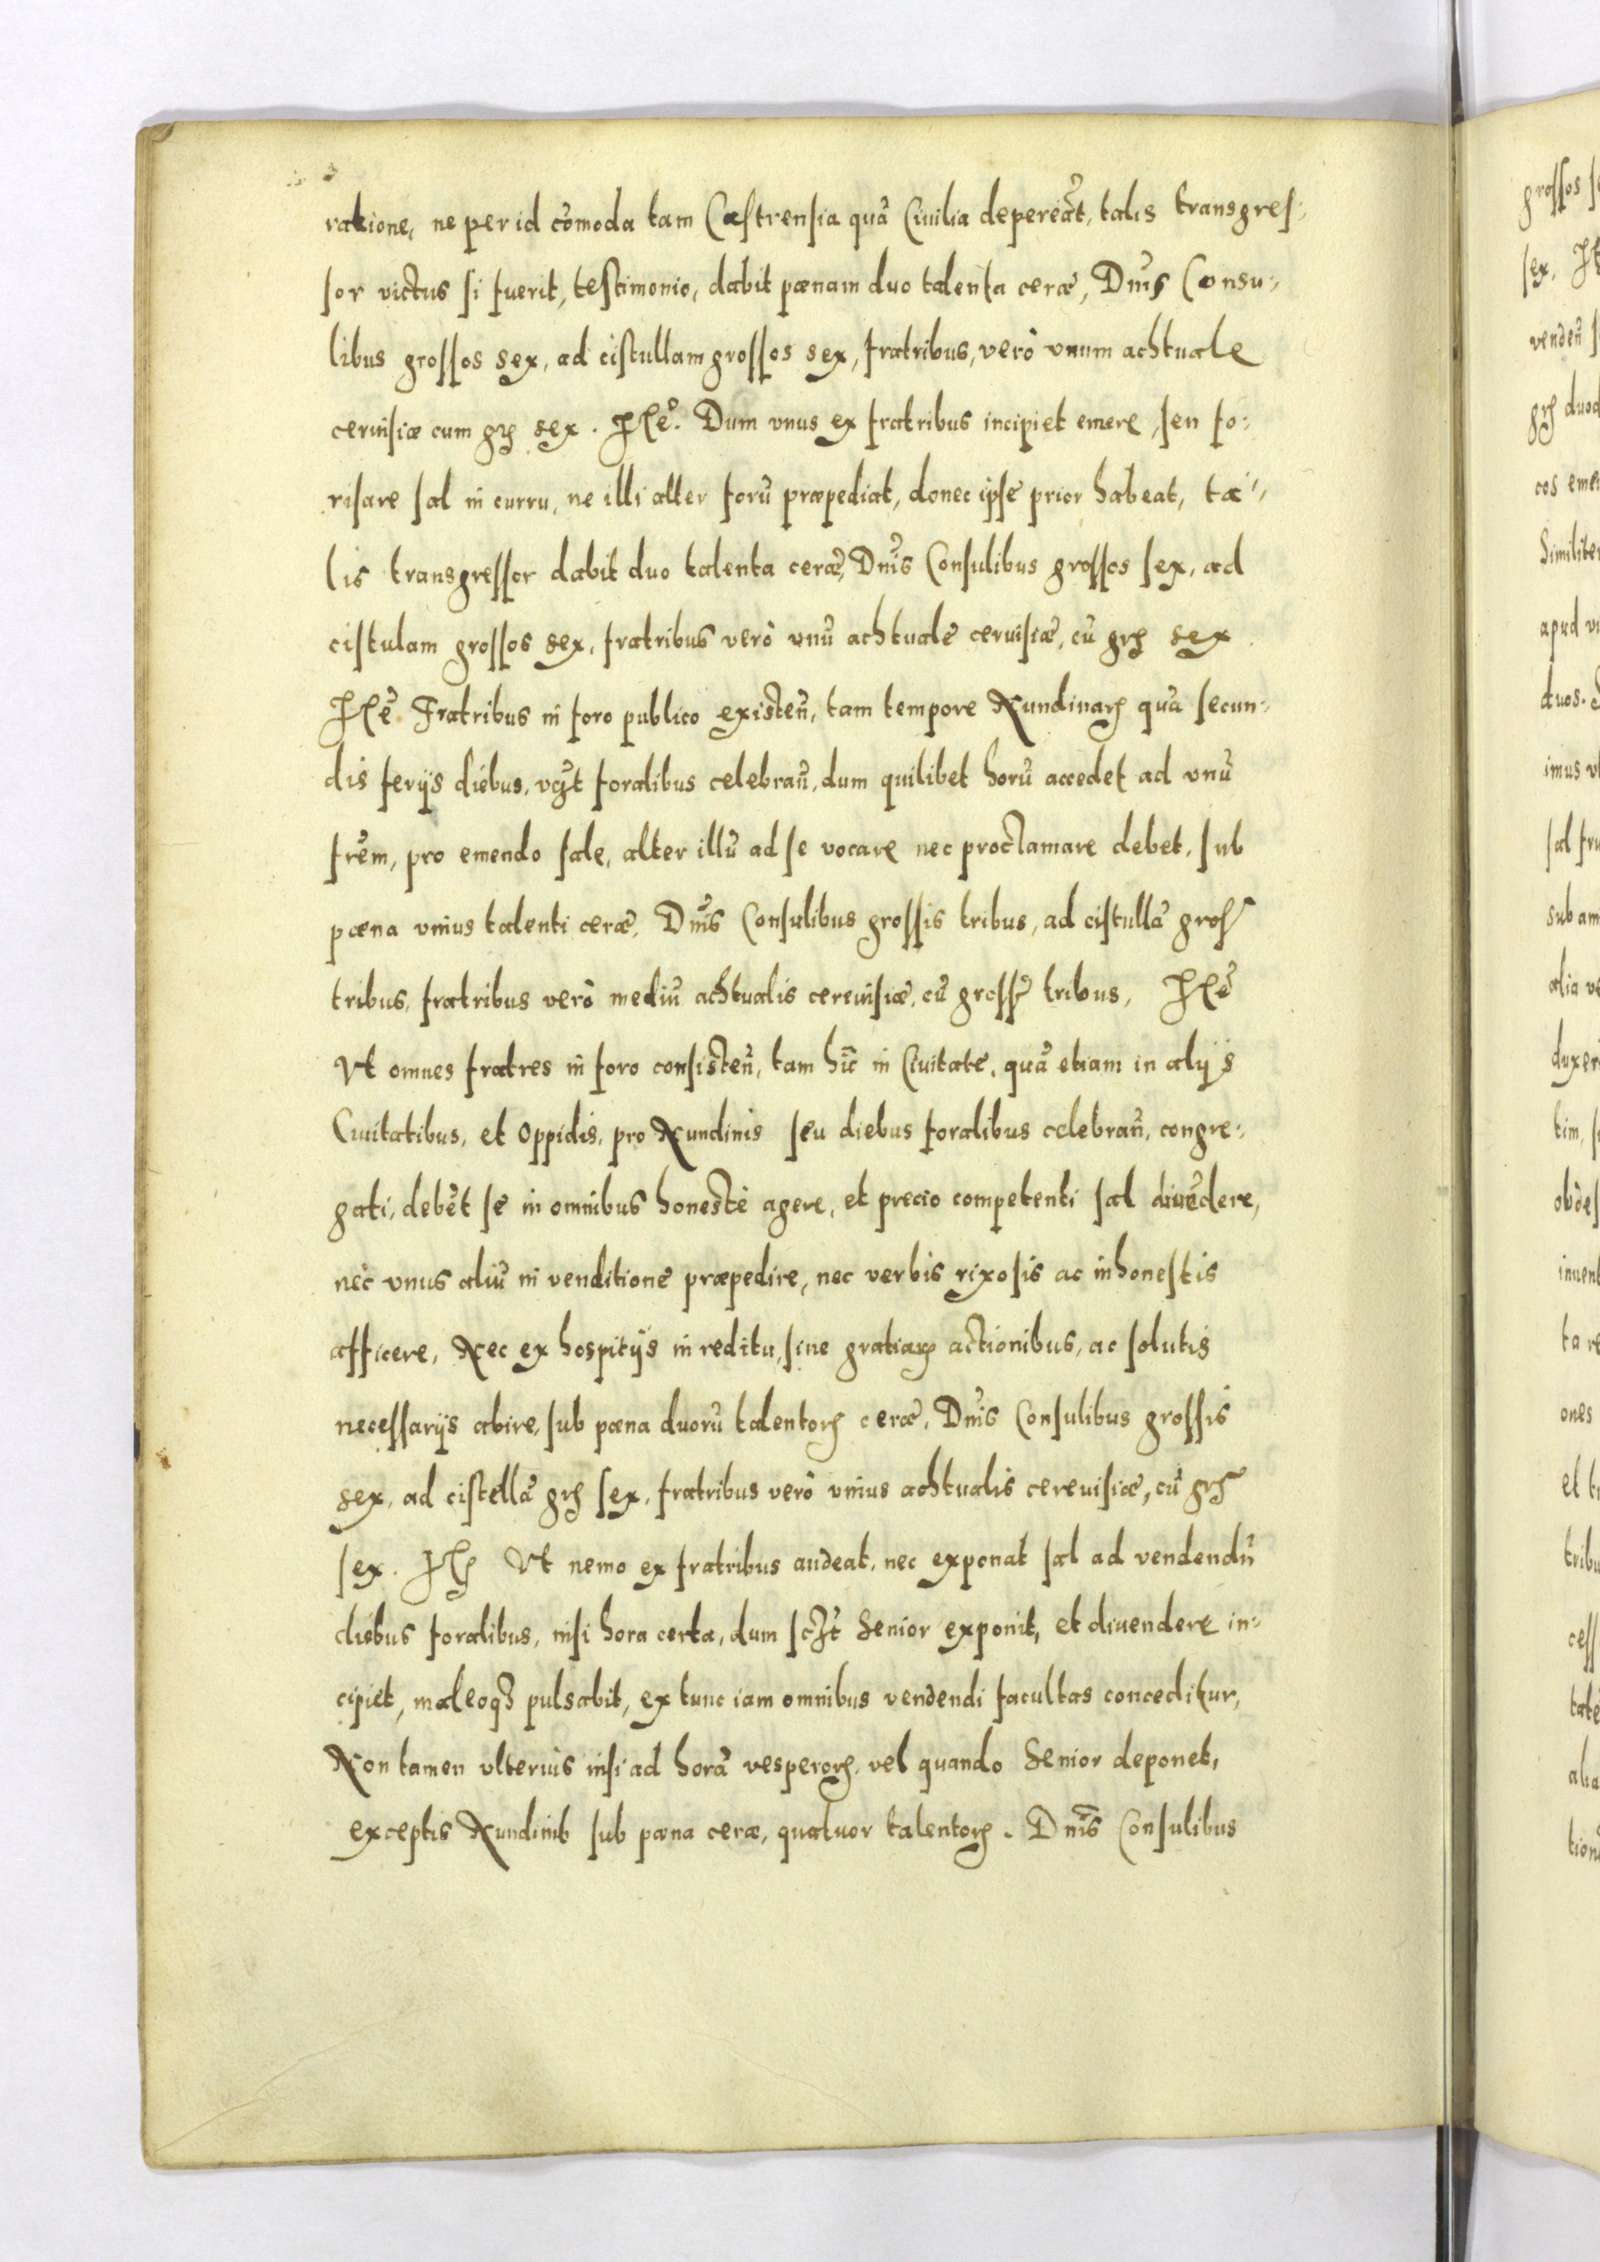 ratione, ne per id cõmoda tam Castrensia quã Ciuilia depereãt, talis transgres:
sor victus si fuerit, testimonio, dabit pœnam duo talenta ceræ, Dnĩs Consu:
libus grossos sex, ad cistullam grossos sex, fratribus, verò vnum achtuale
ceruisiæ cum grꝭ sex. Ite. Dum vnus ex fratribus incipiet emere, seu fo:
risare sal in curru, ne illi alter forũ præpediat, donec ipse prior habeat, ta:
lis transgressor dabit duo talenta ceræ, Dnĩs Consulibus grossos sex, ad
cistulam grossos sex, fratribus verò vnũ achtuale ceruisiæ, cũ grꝭ sex
Itẽ Fratribus in foro publico existeñ, tam tempore Nundinarꝭ quã secun:
dis ferijs diebus, foralibus celebrañ, dum quilibet horũ accedet ad vnũ
frẽm, pro emendo sale, alter illũ ad se vocare nec proclamare debet, sub
pœna vnius talenti ceræ, Dnĩs Consulibus grossis tribus, ad cistullã gross
tribus, fratribus verò mediũ achtualis cereuisiæ, cũ gross tribus, Itẽ
Vt omnes fratres in foro consisteñ, tam hĩc in Ciuitate, quã etiam in alijs
Ciuitatibus, et Oppidis, pro Nundinis seu diebus foralibus celebrañ, congre:
gati, debẽt se in omnibus honestè agere, et precio competenti sal diuẽdere,
nec vnus aliũ in venditione præpedire, nec verbis rixosis ac inhonestis
afficere, Nec ex hospitijs in reditu, sine gratiarꝭ actionibus, ac solutis
necessarijs abire, sub pœna duorũ talentorꝭ ceræ, Dnĩs Consulibus grossis
sex, ad cistellã grꝭ sex, fratribus verò vnius achtualis cereuisiæ, cũ grꝭ
sex. Itꝭ Vt nemo ex fratribus audeat, nec exponat sal ad vendendũ
diebus foralibus, nisi hora certa, dum Senior exponit, et diuendere in:
cipiet, maleoqꝫ pulsabit, ex tunc iam omnibus vendendi facultas conceditur,
Non tamen vlterius nisi ad horã vesperorꝭ, vel quando Senior deponet,
exceptis Nundinis sub pœna ceræ, quatuor talentorꝭ. Dnĩs Consulibus